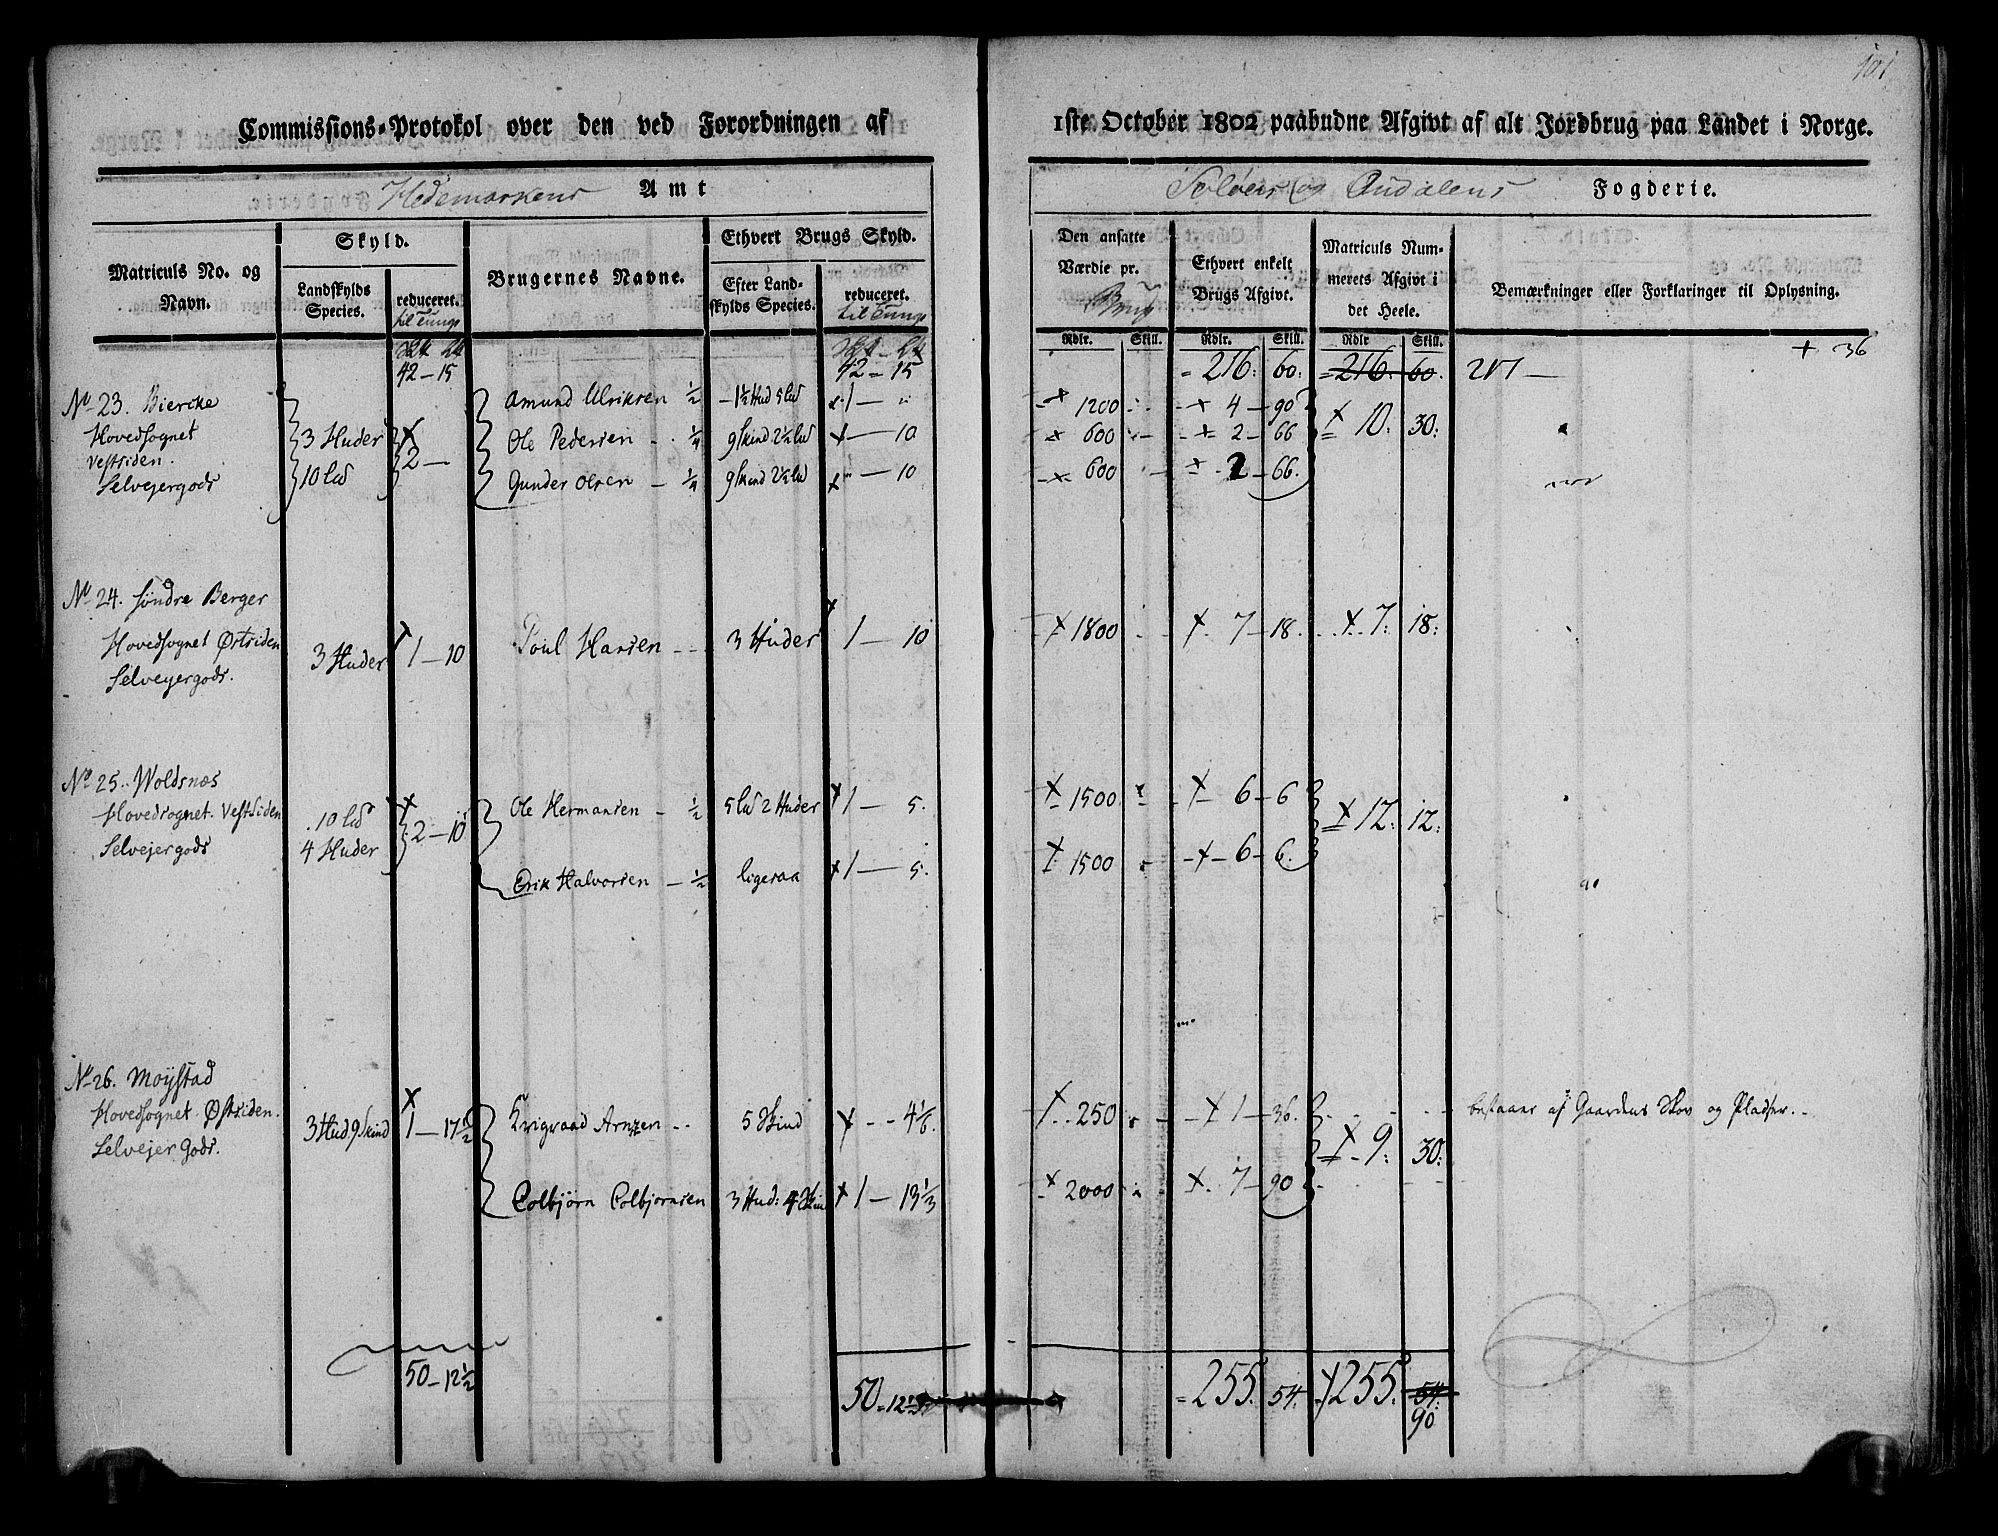 101
Commissions-Protokol over den ved Forordningen af 1ste October 1802 paabudne Afgivt af alt Jordbrug paa Landet i Norge.
Hedemarkens Amt
Soløer og Oudalens Fogderie.
Matriculs No. og Navn.
Skyld.
Landskylds Species.
reduceret. til Tunge
Brugernes Navne.
Ethvert Brugs Skyld.
Efter Landskylds Species.
reduceret. til Tunge
Den ansatte Værdie pr. Brug
Ethvert enkelt Brugs Afgivt.
Matriculs Nummerets Afgivt i det Heele.
Bemærkninger eller Forklaringer til Oplysning.
Rdlr. Skill. Rdlr. Skill. Rdlr Skill.
42 - 15 42 - 15 = 216: 60: = 216. 60. 217 — + 36
No 23. Biercke
Hovedsognet
Vestsiden.
Selvejergods
3 Huder
10 lad
2 —
Amund Ulriksen ½ - 1½ Hud 5 lad 1 — " 1200 4 - 90 10: 30:
Ole Pedersen - ¼ 9 skind 2½ lad — 10 600 2 - 66
Gunder Olsen - ¼ 9 skind 2½ lad — 10 600 2 - 66.
No 24. Søndre Berger
Hovedsognet Østsiden
Selvejergods.
3 Huder 1 - 10 Poul Hansen - - 3 Huder 1 — 10 1800 7 - 18. 7: 18:
No 25. Woldsnæs
Hovedsognet Vestsiden
Selvejergods
10 lad
4 Huder
2 - 10
Ole Hermansen - ½ 5 lad 2 Huder 1 — 5. 1500 6 - 6 12: 12:
Erik Halvorsen - ½ ligesaa 1 — 5. 1500 6 - 6.
No 26. Moystad
Hovedsognet Østsiden.
Selvejer Gods.
3 Hud 9 skind 1 - 17½
Arnzen - - 5 Skind - - 4⅙. 250 1 - 36. 9: 30: bestaaer af Gaardens Skov og Pladser. -
Colbjørn Colbjørnsen 3 Hud: 4 Skin 1 — 13⅓ 2000 7 - 90
50 - 12½ 50 = 12½ = 255. 54. 255. 54:
90